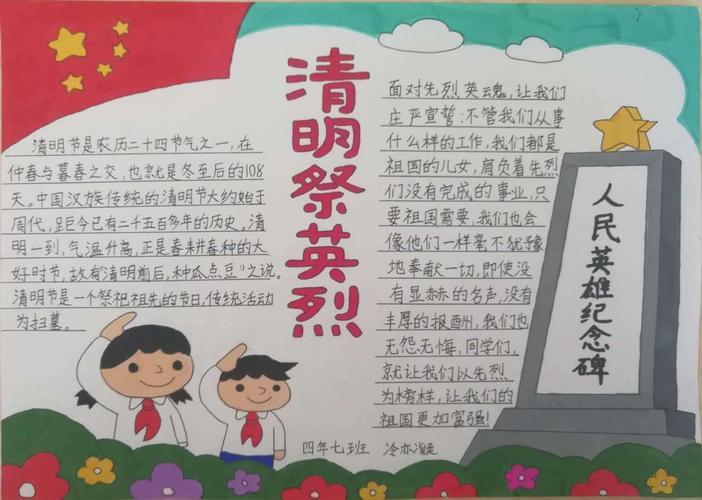 清明祭英烈
清明节是农历二十四节气之一，在
仲春与暮春之交，也就是冬至后的108
天。中国汉族传统的清明节大约始于
周代，距今已有二千五百多年的历史。清
明一到，气温升高，正是春耕春种的大
好时节，故有“清明前后，种瓜点豆”之说。
清明节是一个祭祀祖先的节日，传统活动
为扫墓。
面对先烈英魂，让我们
庄严宣誓：不管我们从事
什么样的工作，我们都是
祖国的儿女，肩负着先烈
们没有完成的事业，只
要祖国需要，我们也会
像他们一样毫不犹豫
地奉献一切，即使没
有显赫的名声，没有
丰厚的报酬，我们也
无怨无悔，同学们，
就让我们以先烈
为榜样，让我们的
祖国更加富强！
人民英雄纪念碑
四年七班 冷亦